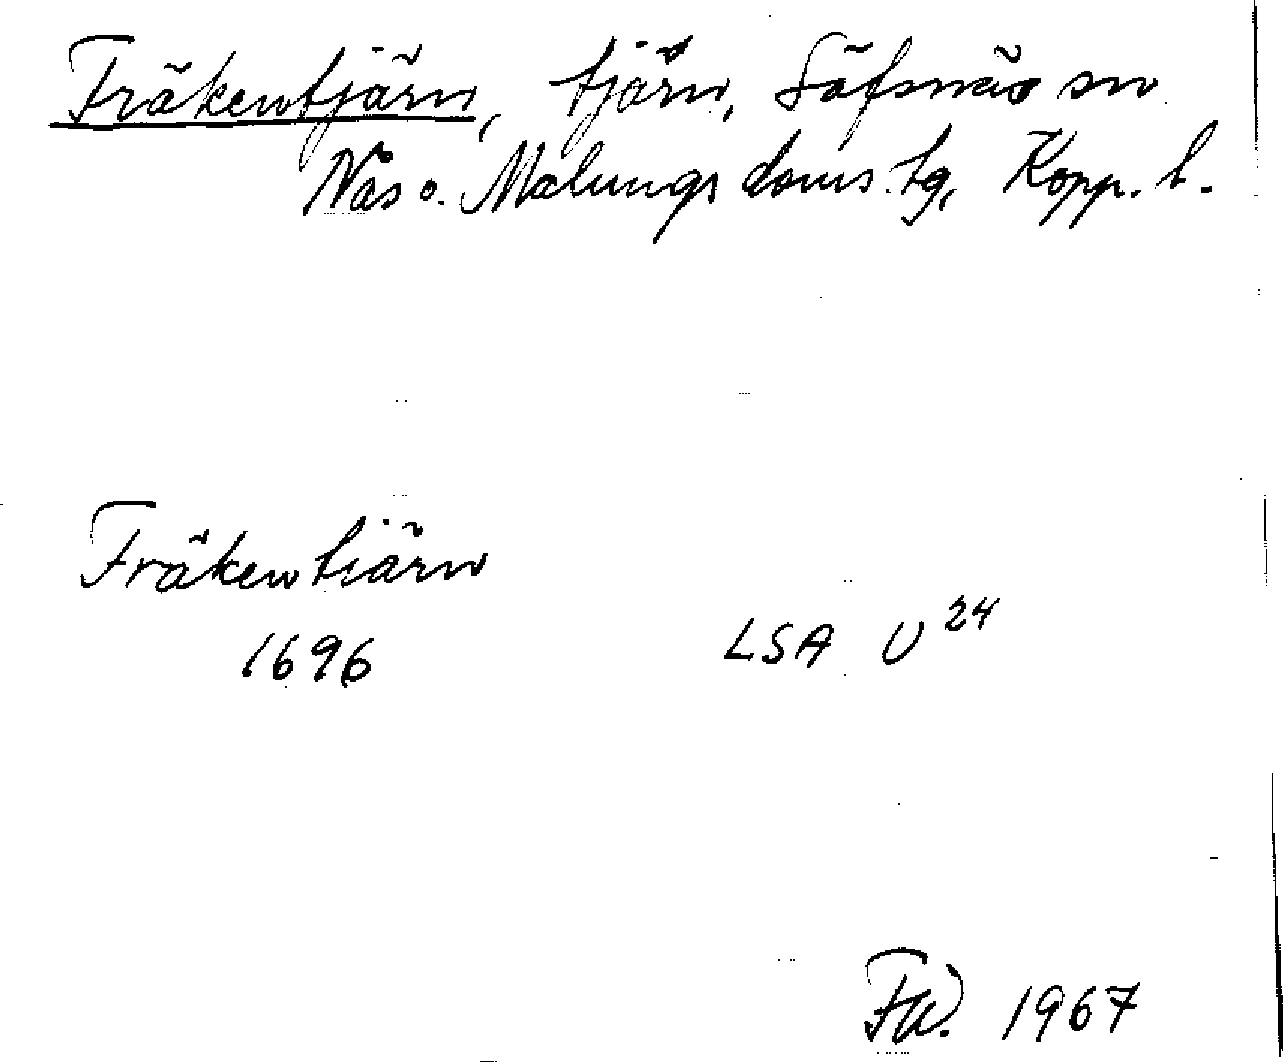 Fräkentjärn, tjärn, Säfsnäs sn
Nås o. Malungs doms. tg, Kopp. l.
Fräkentiärn
1696
LSA U 24
FW. 1967